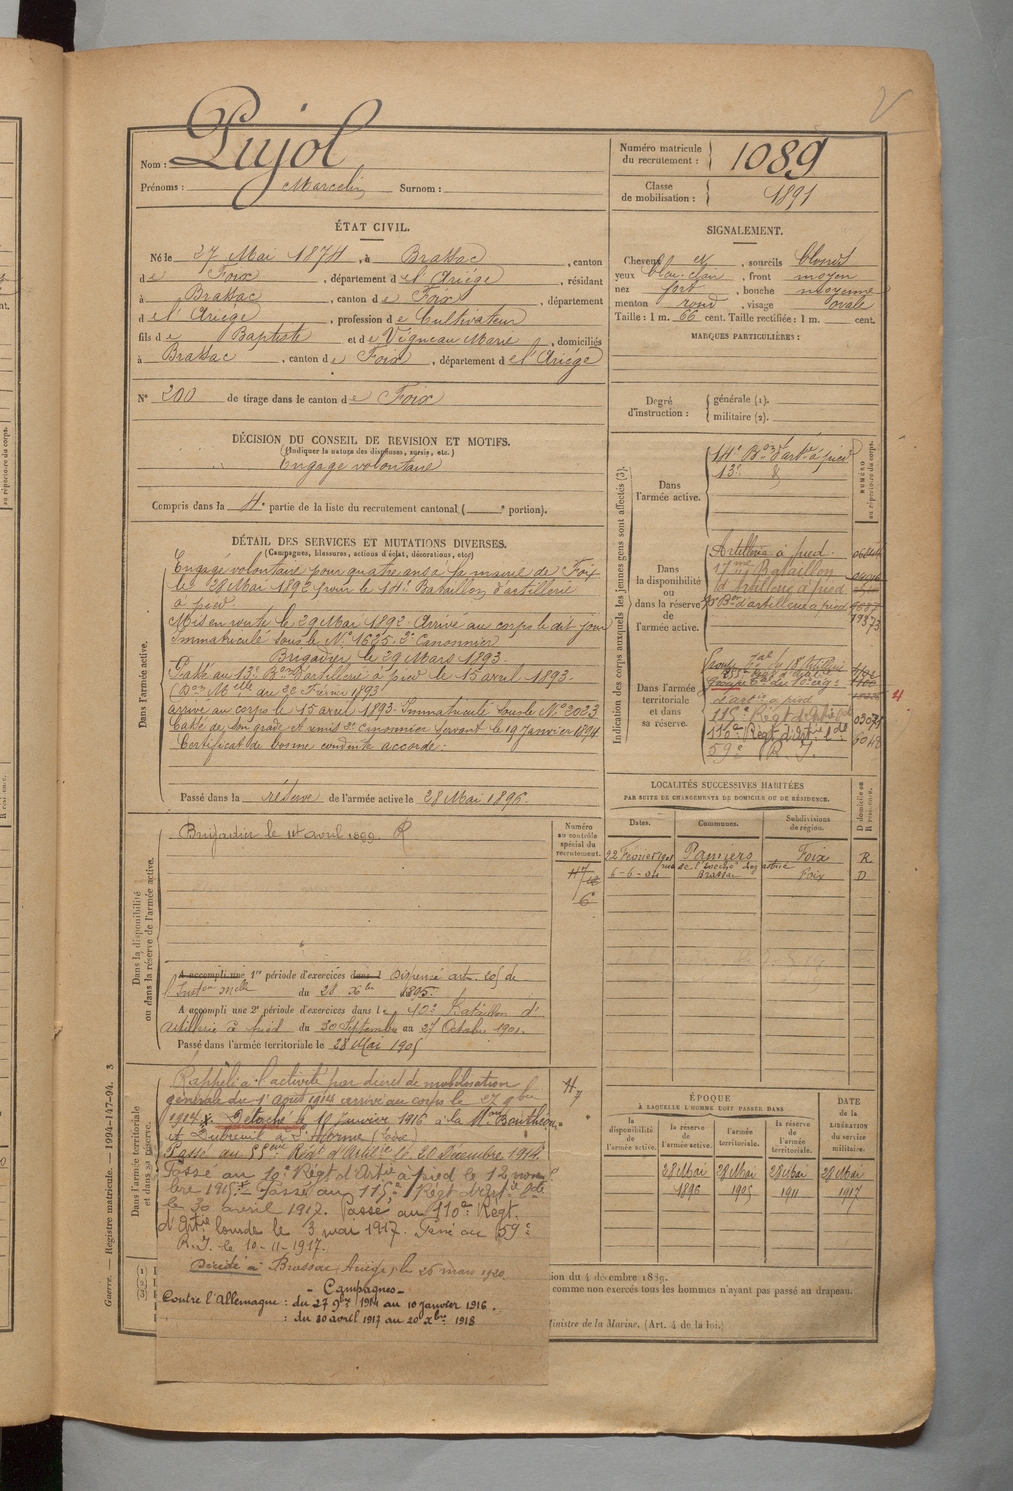 Nom : Pujol
Prénoms : Marcelin Surnom :
Numéro matricule du recrutement : 1089
Classe de mobilisation : 1891
ÉTAT CIVIL.
Né le 27 Mai 1874, à Brassac, canton
de Foix, département de l'Ariège, résidant
à Brassac, canton de Foix, département
de l'Ariège, profession de Cultivateur
fils de Baptiste et de Vigneau Marie, domiciliés
à Brassac, canton de Foix, département de l'Ariège
N° 200 de tirage dans le canton de Foix
SIGNALEMENT.
Cheveux et, sourcils blonds
yeux bleu-clair, front moyen
nez fort, bouche moyenne
menton rond, visage ovale
Taille : 1 m. 66 cent. Taille rectifiée : 1 m. cent.
MARQUES PARTICULIÈRES :
Degré d'instruction : générale (1).
militaire (2).
DÉCISION DU CONSEIL DE REVISION ET MOTIFS.
(Indiquer la nature des dispenses, sursis, etc.)
Engagé volontaire
Compris dans la 4e partie de la liste du recrutement cantonal (e portion).
DÉTAIL DES SERVICES ET MUTATIONS DIVERSES.
(Campagnes, blessures, actions d'éclat, décorations, etc.)
Dans l'armée active.
Engagé volontaire pour quatre ans à la mairie de Foix
le 28 Mai 1892 pour le 14e Bataillon d'artillerie
à pied.
Mis en route le 29 Mai 1892. Arrivé au corps le dit jour
Immatriculé sous le N° 1625. 2e Canonnier
Brigadier le 29 Mars 1893.
Passé au 13e Bon d'artillerie à pied le 15 avril 1893.
arrivé au corps le 15 avril 1893. Immatriculé sous le N° 2023
Cassé de son grade et remis 2e Canonnier servant le 19 janvier 1894
Certificat de bonne conduite accordé.
Passé dans la réserve de l'armée active le 28 Mai 1896.
Indication des corps auxquels les jeunes gens sont affectés (3).
NUMÉRO au répertoire du corps.
Dans l'armée active.
14e Bon d'artie à pied
13e &
Dans la disponibilité ou dans la réserve de l'armée active.
Artillerie à pied.
17me Bataillon
d'artillerie à pied
Bon d'artillerie à pied
Dans l'armée territoriale et dans sa réserve.
d'artie à pied
115e Régt d'Artie
110e Régt d'Artie Lde
59e R.I.
4
LOCALITÉS SUCCESSIVES HABITÉES
PAR SUITE DE CHANGEMENTS DE DOMICILE OU DE RÉSIDENCE.
Dates. Communes. Subdivisions de région. D domicile ou R résidence.
22 Février 1901 Pamiers Foix R
6-6-04 Brassac Foix D
Dans la disponibilité ou dans la réserve de l'armée active.
Numéro au contrôle spécial du recrutement.
Brigadier le 1er avril 1899. R
A accompli une 1re période d'exercices dans l Dispensé art. 205 de
l'Inston Melle du 28 Xbre 1895.
A accompli une 2e période d'exercices dans le 10e Bataillon d'
artillerie à pied du 30 Septembre au 27 Octobre 1901.
Passé dans l'armée territoriale le 28 Mai 1905
Dans l'armée territoriale et dans sa réserve.
Rappelé à l'activité par décret de mobilisation
générale du 1er Août 1914 arrivé au corps le 27 9bre
1914 Détaché le 10 Janvier 1916 à la Mon
et Dubreuil à
Passé au Régt d'Artie le 20 Décembre 1914.
Passé au 10e Régt d'Artie à pied le 12 novem
bre 1915 Passé au 115e Régt d'Artie
le 30 avril 1917. Passé au 110e Régt
d'Artie lourde le 3 mai 1917. Passé au 59e
R.I. le 10-11-1917.
Décédé à Brassac, Ariège, le 26 mars 1920
- Campagnes -
Contre l'Allemagne : du 27 9bre 1914 au 10 janvier 1916.
: du 30 avril 1917 au 20 Xbre 1918
ÉPOQUE
À LAQUELLE L'HOMME DOIT PASSER DANS
la disponibilité de l'armée active. la réserve de l'armée active. l'armée territoriale. la réserve de l'armée territoriale.
DATE de la LIBÉRATION du service militaire.
28 Mai 28 Mai 28 Mai 28 Mai
1896 1905 1911 1917
ion du 4 décembre 1889.
comme non exercés tous les hommes n'ayant pas passé au drapeau.
Ministre de la Marine. (Art. 4 de la loi.)
Guerre. — Registre matricule. — 1994-147-94. 3